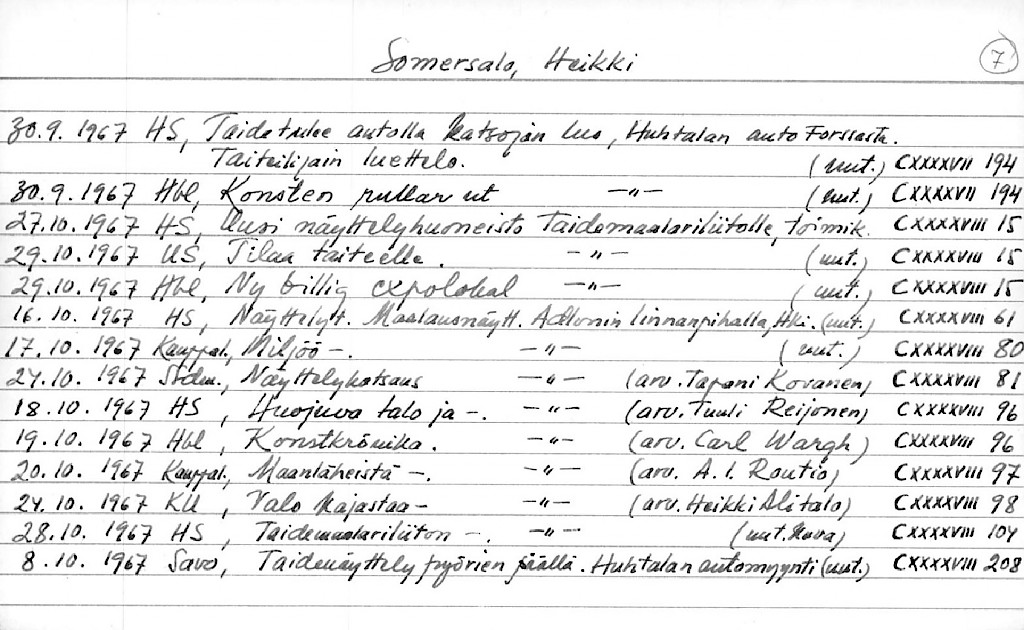 Somersalo, Heikki 7
30.9. 1967 HS, Taide tulee autolla katsojan luo, Huhtalan auto Forssasta.
Taiteilijain luettelo. (uut.) CXXXXVII 194
30.9. 1967 Hbl, Konsten rullar ut —"— (uut.) CXXXXVII 194
27.10. 1967 HS, Uusi näyttelyhuoneisto Taidemaalariliitolle, toimik. CXXXXVIII 15
29.10. 1967 US, Tilaa taiteelle. —"— (uut.) CXXXXVIII 15
29.10. 1967 Hbl, Ny billig expolokal —"— (uut.) CXXXXVIII 15
16.10. 1967 HS, Näyttelyt. Maalausnäytt. Adlonin linnanpihalla, Hki. (uut.) CXXXXVIII 61
17.10. 1967 Kauppal., Miljöö —. —"— (uut.) CXXXXVIII 80
24.10. 1967 Sosdem., Näyttelykatsaus —"— (arv. Tapani Kovanen) CXXXXVIII 81
18.10. 1967 HS, Huojuva talo ja —. —"— (arv. Tuuli Reijonen) CXXXXVIII 96
19.10. 1967 Hbl, Konstkrönika. —"— (arv. Carl Wargh) CXXXXVIII 96
20.10. 1967 Kauppal., Maanläheistä —. —"— (arv. A.I. Routio) CXXXXVIII 97
24.10. 1967 KU, Valo kajastaa — —"— (arv. Heikki Alitalo) CXXXXVIII 98
28.10. 1967 HS, Taidemaalariliiton —. —"— (uut. kuva) CXXXXVIII 104
8.10. 1967 Savo, Taidenäyttely pyörien päällä. Huhtalan automyynti (uut.) CXXXXVIII 208